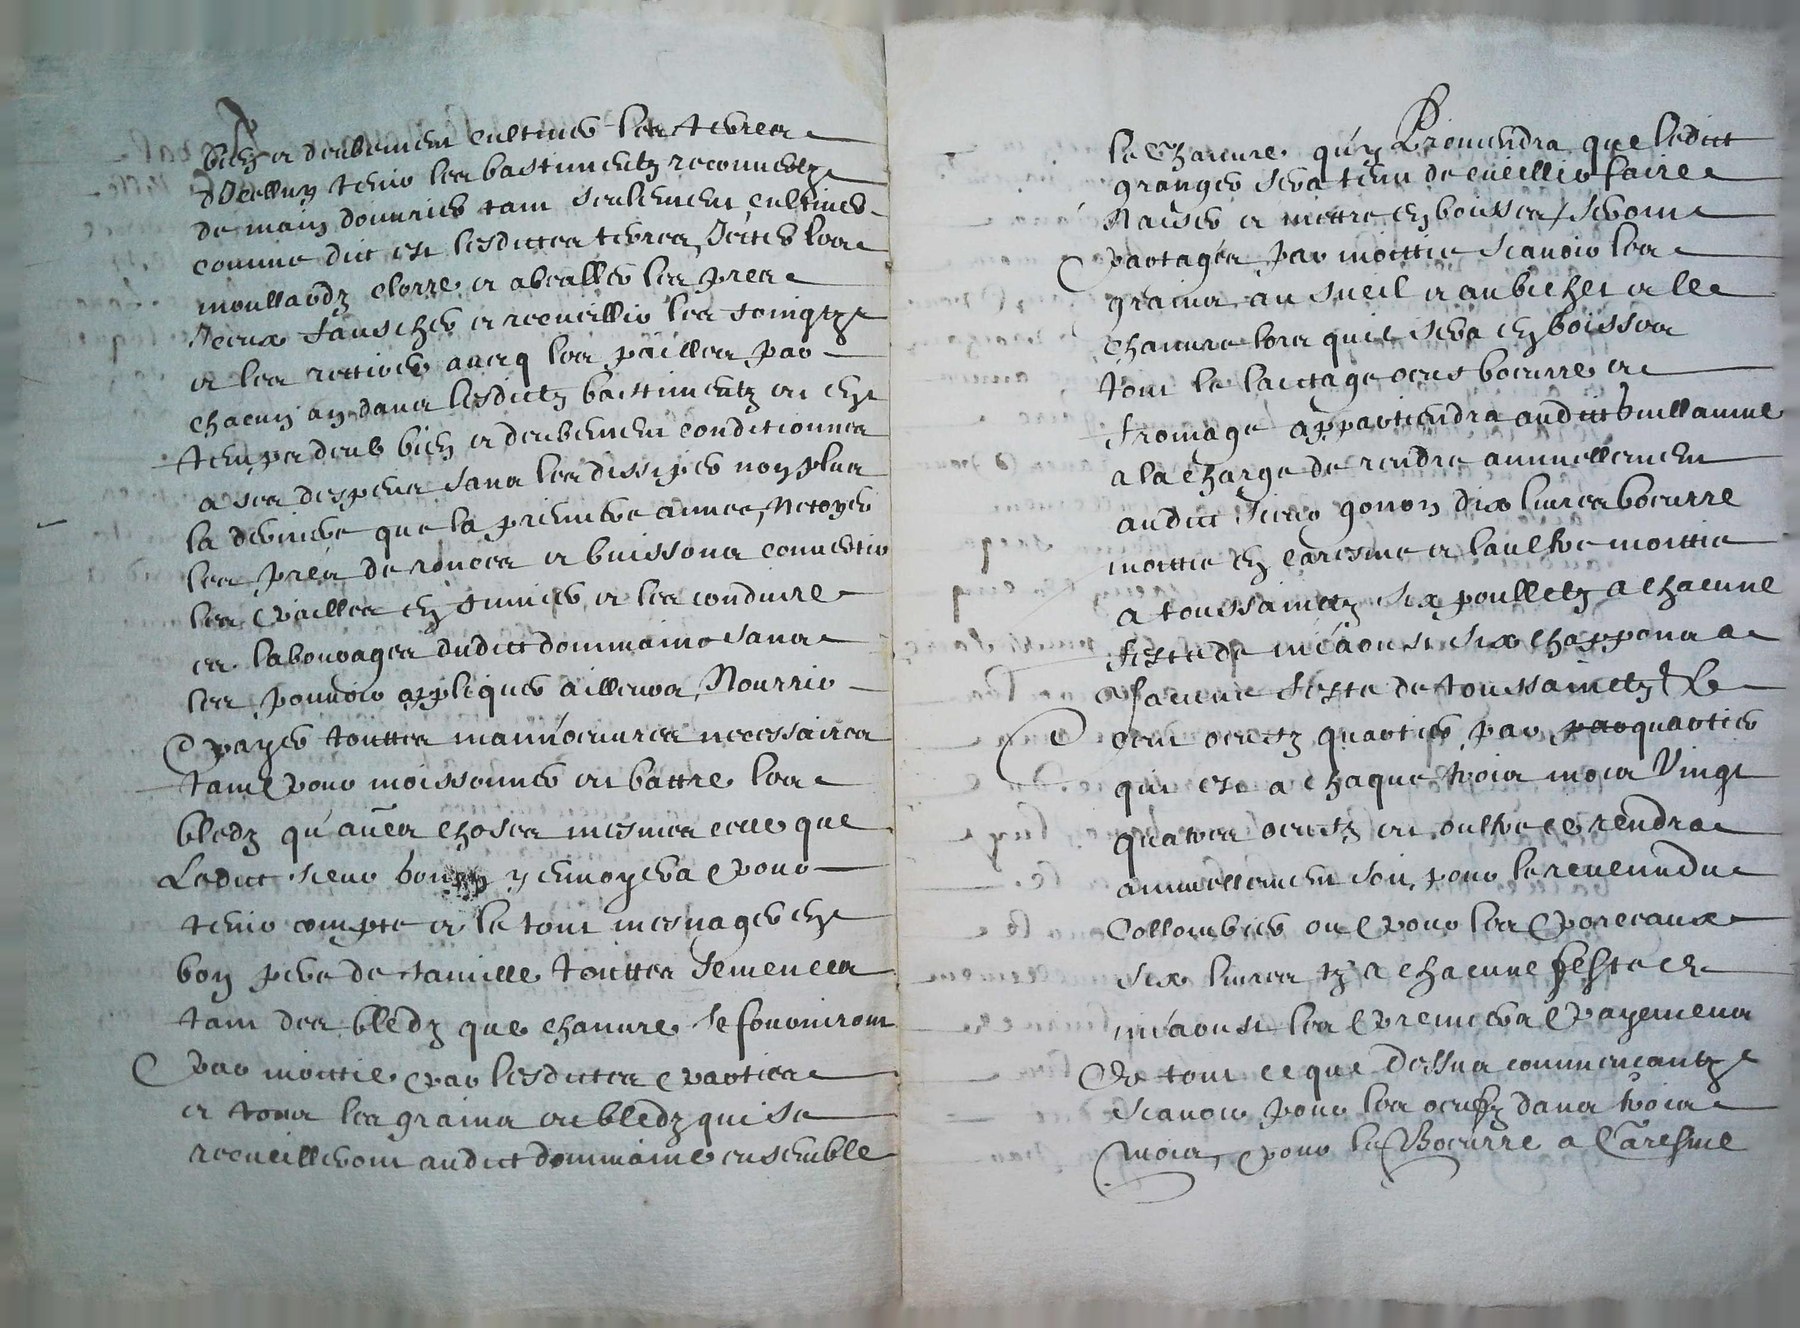 bien et deubement cultiver les terres
d'Icelluy tenir les bastimentz recouvertz
de main d'ouvrier tant seulement cultiver
comme dict est lesdittes terres, Jetter les
moullardz clorre et abealler les prez
Iceux fauscher et recueillir les foingtz
et les retirer avecq les pailles par
chacun an dans lesdictz bastimentz et en
temps deub bien et deubement conditionnes
a ses despens sans les dissiper non plus
la derniere que la premiere annee, Netoyer
les prez de ronces et buissons convertir
les pailles en fumier et les conduire
es labourages dudict dommaine sans
les pouvoir appliquer ailleurs, Nourrir
payer touttes mannoeuvres necessaires
tant pour moissonner et battre les
bledz qu'aūes choses mesmes celle que
Ledict sieur y envoyera pour
tenir compte et le tout mesnager en
bon pere de famille touttes semences
tant des bledz que chanvre se fourniront
par moittie par lesdittes parties
et tous les grains et bledz qui se
recueilleront audict dommaine ensemble
le chanvre qu'y Proviendra que ledict
granger sera tenu de cueillir faire
Naiser et mettre en boisses, seront
partages par moittie scavoir les
grains au sueil et au bichet et le
chanvre lors quil sera en boisses
tout le laictage oeufs boeurre et
fromage appartiendra audict Guillaume
a la charge de rendre annuellement
audict sieur gonon dix livres boeurre
moittie en caresme et laultre moittie
a toussainctz six poulletz a chacune
feste de mi'aoust six chappons a
chacune feste de toussainctz & le
cent oeufz quartier par par quartier
qui est a chaque trois mois vingt
quatres oeufz et oultre ce rendra
annuellement soit pour le revenu du
Collombier ou pour les porceaux
six livres tz a chacune feste de
mi'aoust les premiers payemens
De tout ce que dessus commenceantz
scavoir pour les oeufz dans trois
mois, pour le Boeurre a Caresme